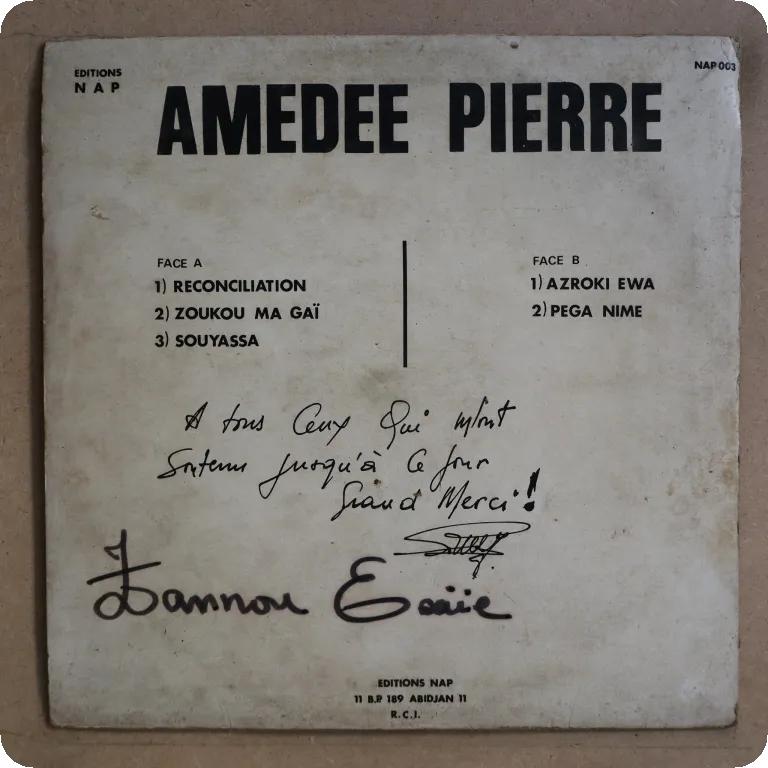 EDITIONS
NAP
NAP 003
AMEDEE PIERRE
FACE A
1) RECONCILIATION
2) ZOUKOU MA GAÏ
3) SOUYASSA
FACE B
1) AZROKI EWA
2) PEGA NIME
A tous Ceux Qui m'ont
Soutenu jusqu'à Ce jour
Grand Merci !
Zannou Esaïe
EDITIONS NAP
11 B.P. 189 ABIDJAN 11
R.C.I.